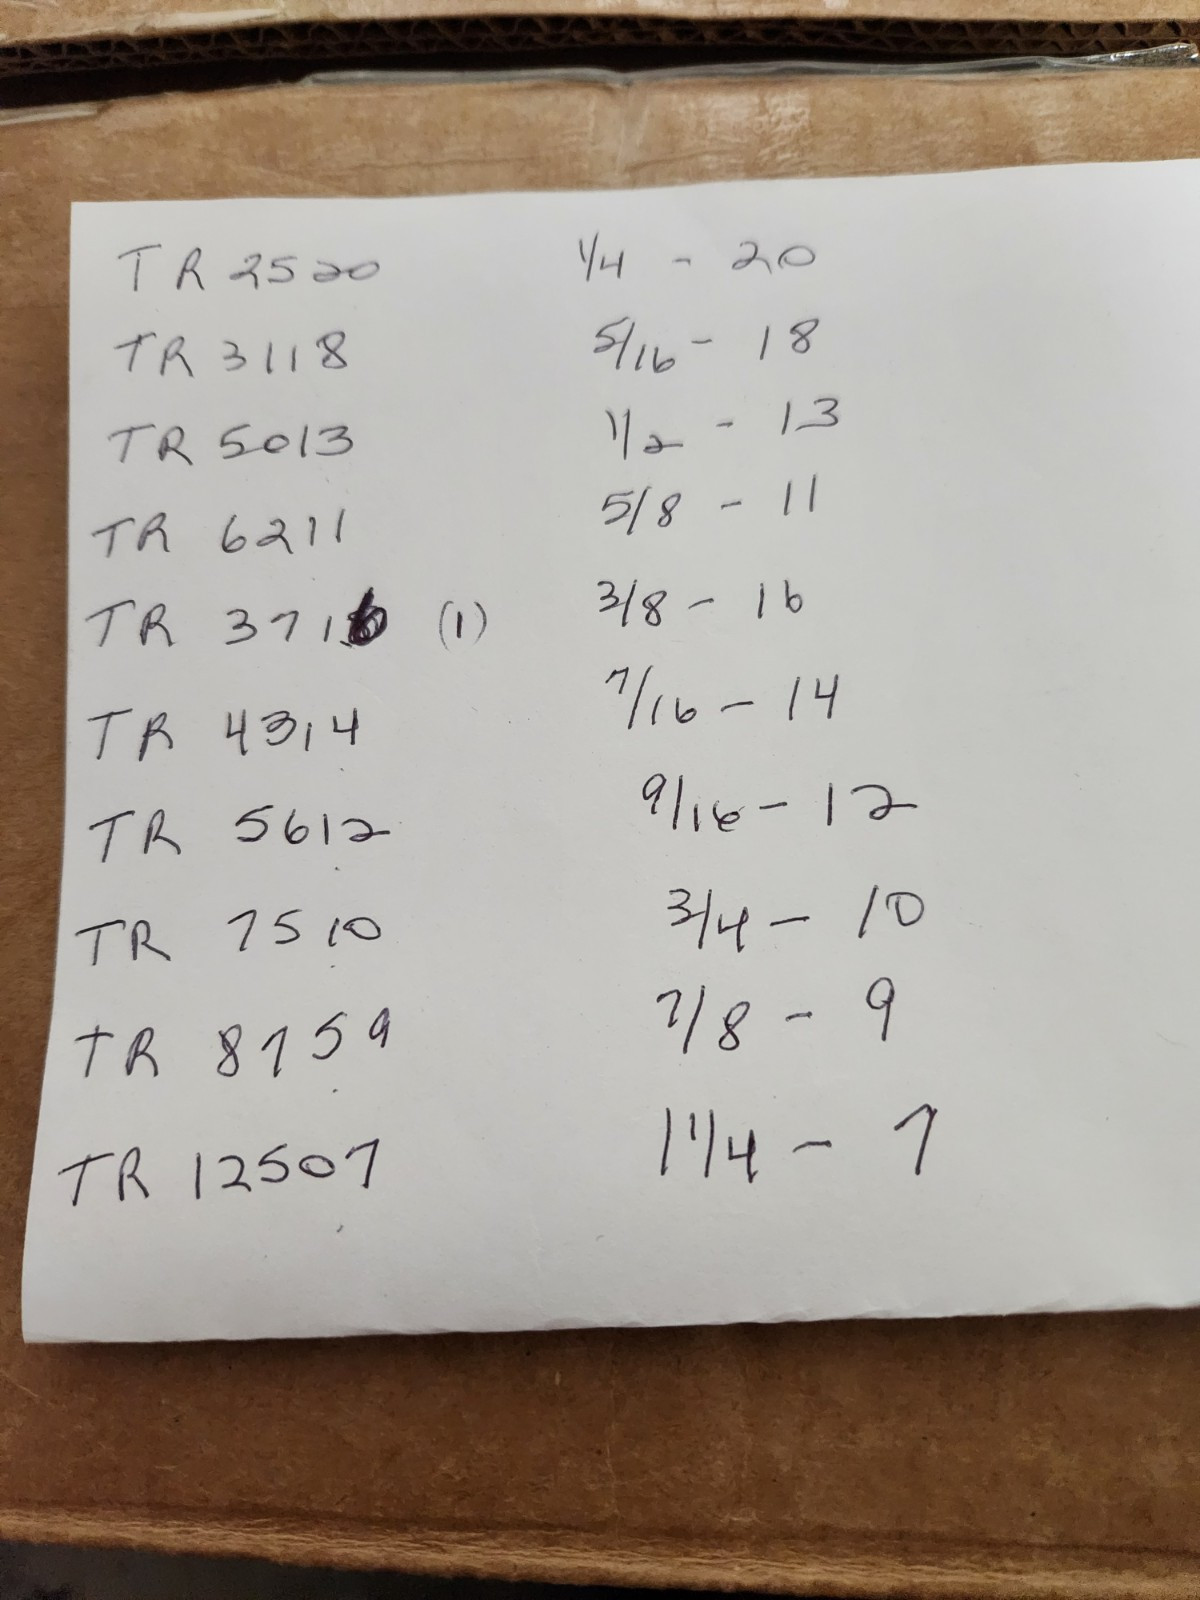 TR 2520 1/4 - 20
TR 3118 5/16 - 18
TR 5013 1/2 - 13
TR 6211 5/8 - 11
TR 3716 (1) 3/8 - 16
TR 4314 7/16 - 14
TR 5612 9/16 - 12
TR 7510 3/4 - 10
TR 8759 7/8 - 9
TR 12507 1 1/4 - 7